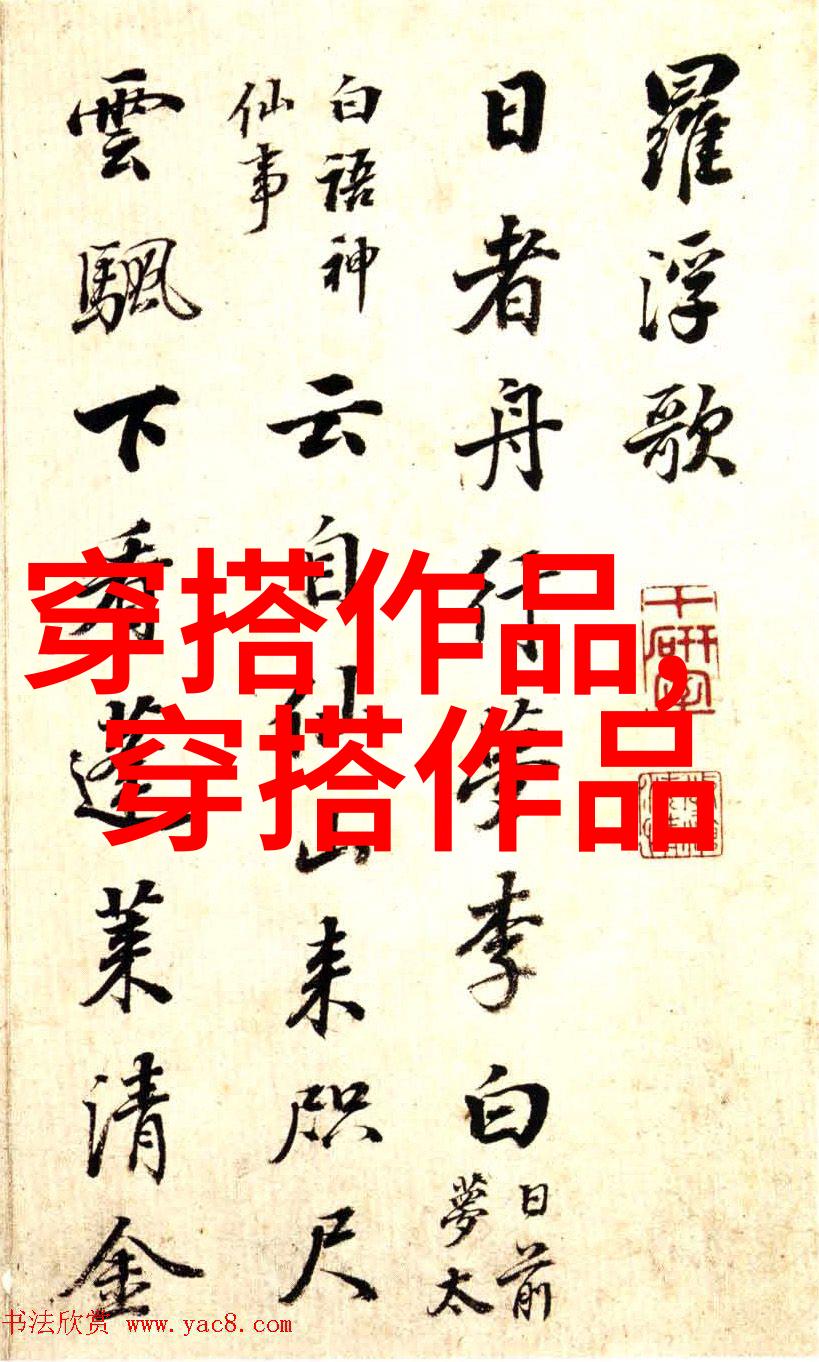 羅浮歌
日者舟行夢李白
日前
夢太
白語神
仙事
云自仙山来咫尺
雲颿下看蓬莱清金
穿搭作品,
穿搭作品
书法欣赏 www.yac8.com